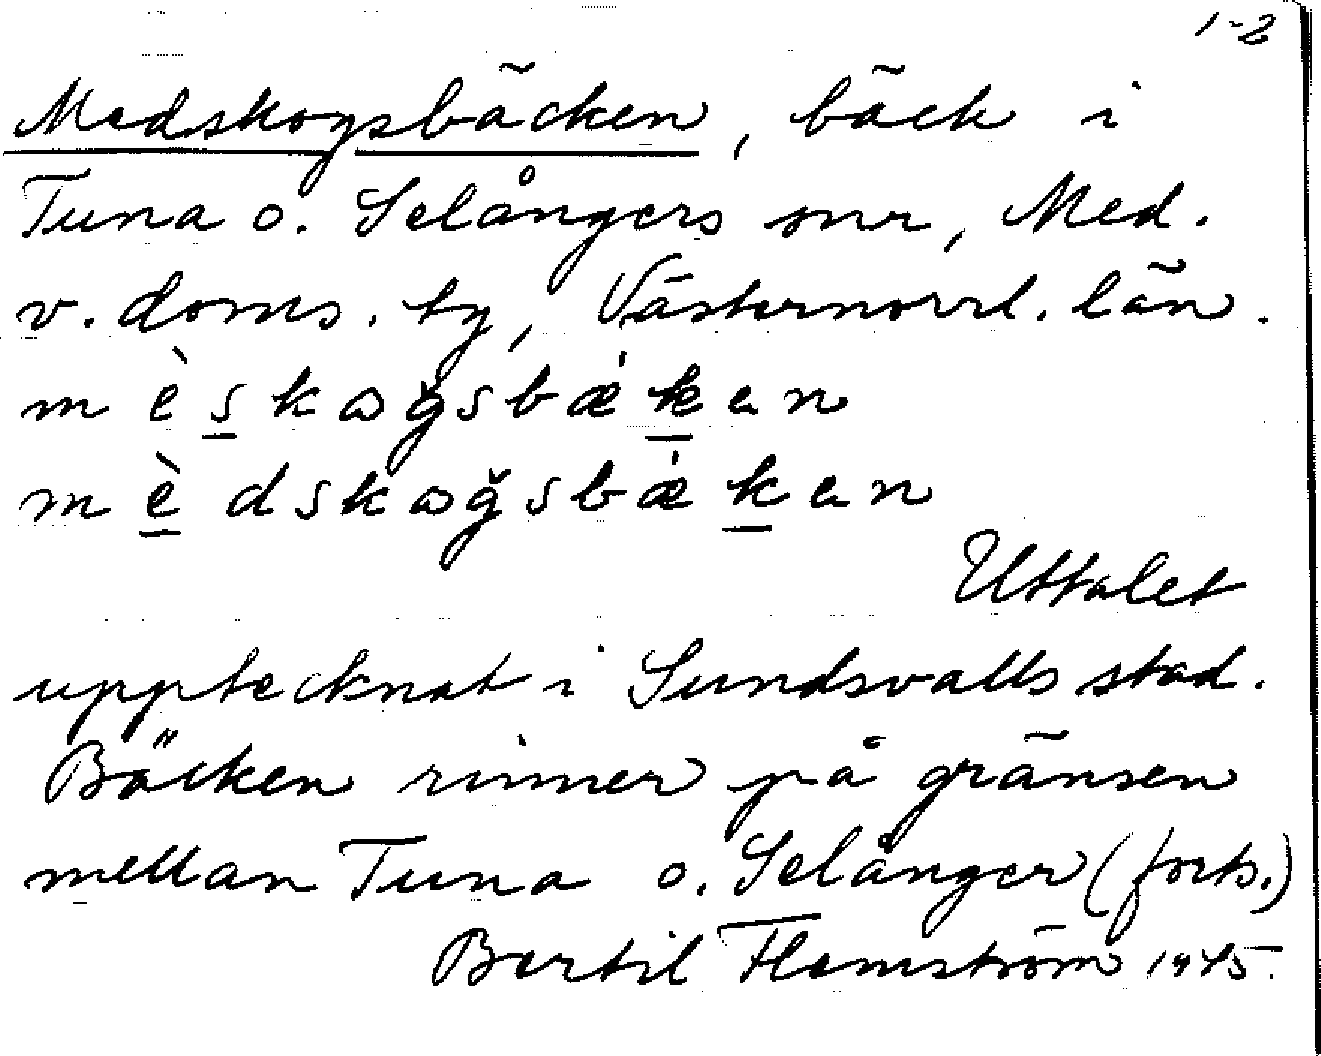 1-2
Medskogsbäcken, bäck i
Tuna o. Selångers snr, Med.
v. doms. ty, Västernorrl. län.
m è s k ꝏ ğ s b ǽ k e n
m è d s k ꝏ ğ s b ǽ k e n
Uttalet
upptecknat i Sundsvalls stad.
Bäcken rinner på gränsen
mellan Tuna o. Selånger (forts.)
Bertil Flemström 1945.